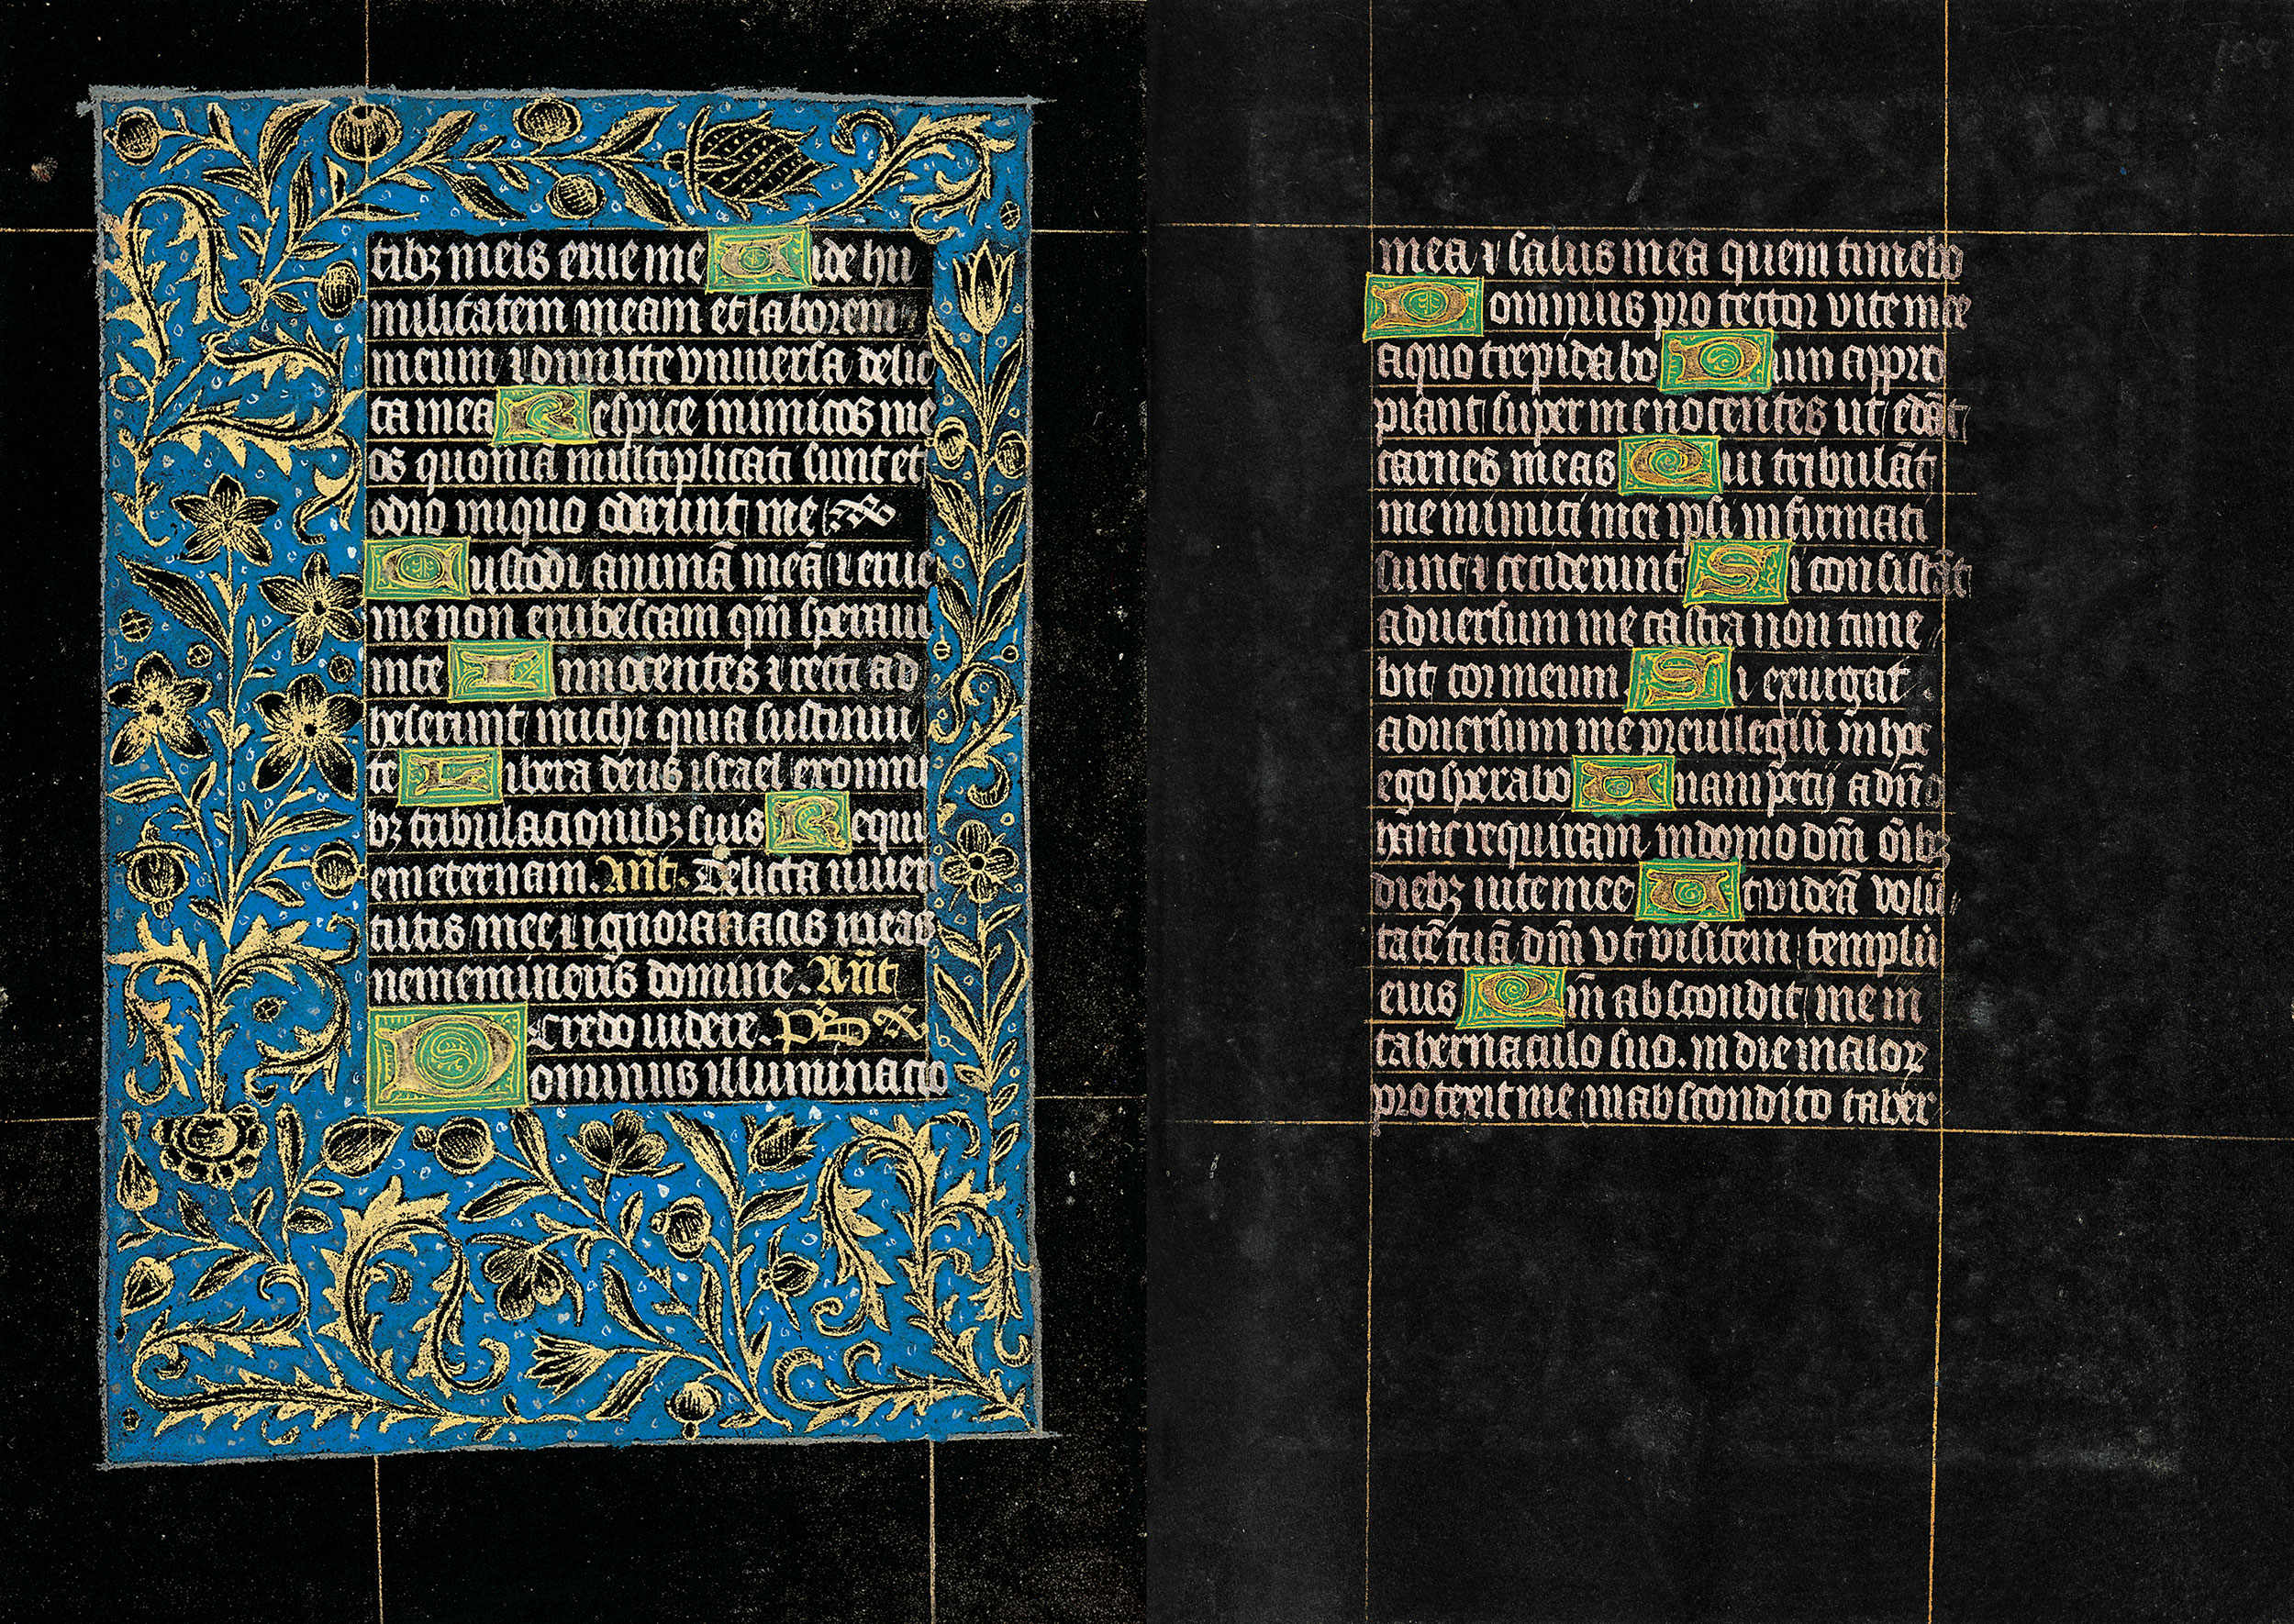 tibꝫ meis erue me Vide hu
militatem meam et laborem
meum ⁊ dimitte vniuersa delic
ta mea Respice inimicos me
os quoniā multiplicati sunt et
odio iniquo oderunt me
Custodi animā meā ⁊ erue
me non erubescam qm̄ speraui
in te Innocentes ⁊ recti ad
heserunt michi quia sustinui
te Libera deus israel ex omni
bꝫ tribulacionibꝫ suis Requi
em eternam. Ant̄. Delicta iuuen
tutis mee ⁊ ignorancias meas
ne memineris domine. Ant̄
Credo uidere. Ps̄
Dominus illuminatio
mea ⁊ salus mea quem timebo
Dominus protector vite mee
a quo trepidabo Dum appro
piant super me nocentes ut edāt
carnes meas Qui tribulāt
me inimici mei ipsi infirmati
sunt ⁊ ceciderunt Si consistāt
aduersum me castra non time
bit cor meum Si exurgat
aduersum me preuilegiū in hoc
ego sperabo Vnam petij a dn̄o
hanc requiram in domo dn̄i oībꝫ
diebꝫ uite mee Vt videā volū
tatē tuā dn̄i vt visitem templū
eius Qm̄ abscondit me in
tabernaculo suo. in die malor
protexit me in abscondito taber